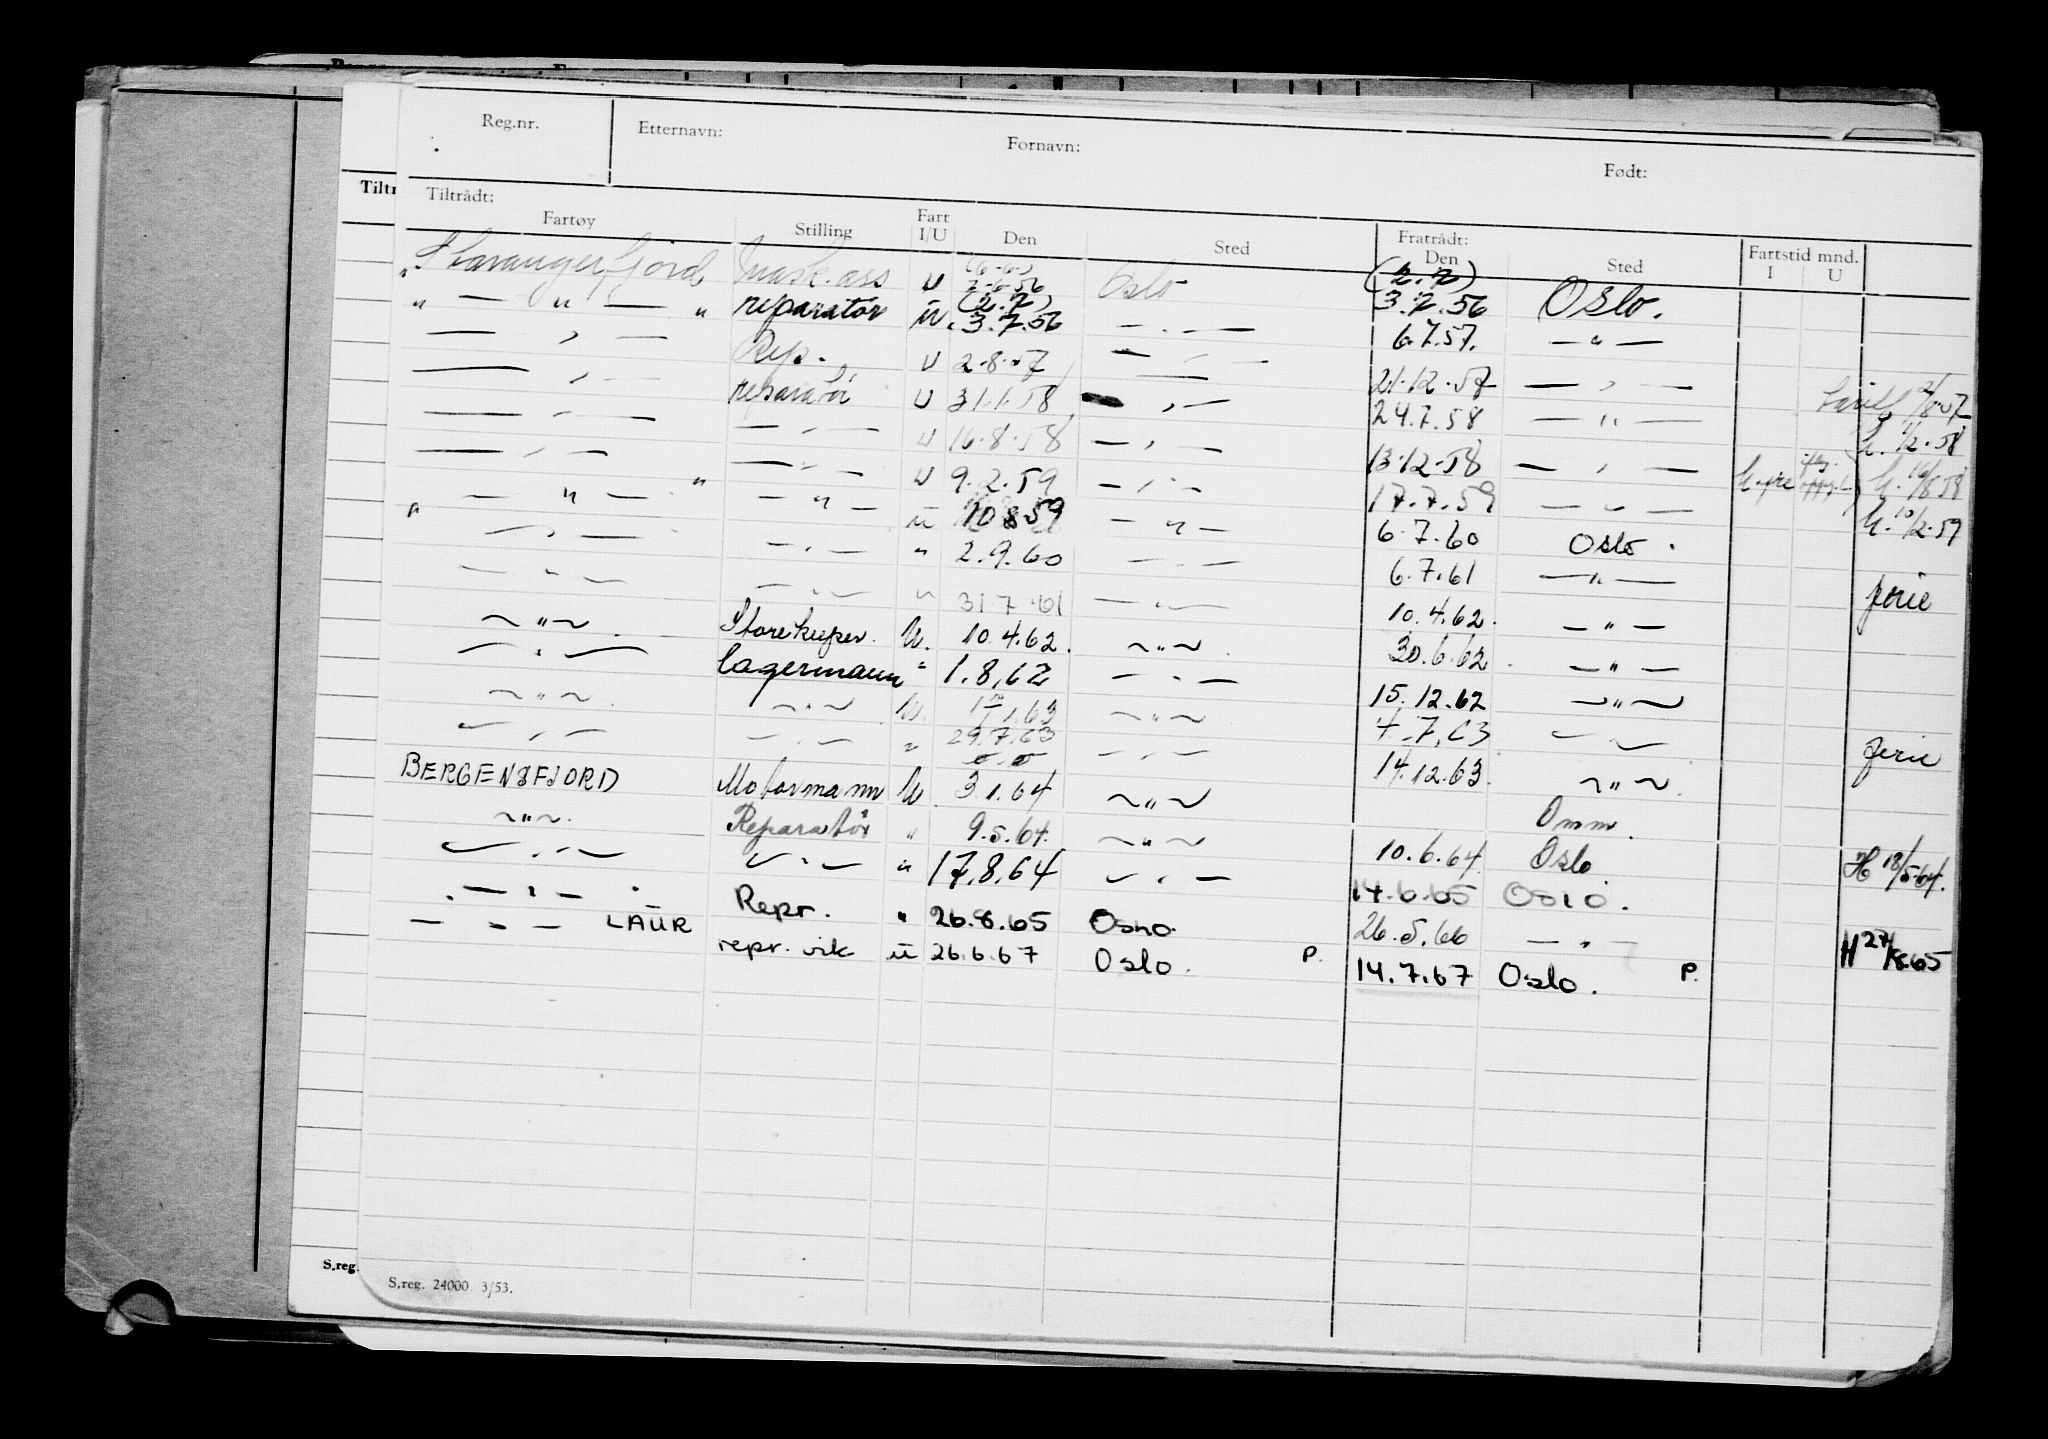 Reg.nr. Etternavn: Fornavn: Født:
Tiltrådt: Fratrådt: Fartstid mnd.
Fartøy Stilling Fart I/U Den Sted Den Sted I U
"Stavangerfjord mask.ass U 2.6.56 Oslo (2.7) 3.7.56 Oslo.
" — " — " reparatør u. (2.7) 3.7.56 — " — 6.7.57. — " —
— " — Rep. U 2.8.57 — " — 21.12.57 — " — 2/8.57
— " — reparatør U 31.1.58 — " — 24.7.58 — " — h. 1/2.58
— " — — " — U 16.8.58 — " — 13.12.58 — " — h. 16/8 58
— " — — " — U 9.2.59 — " — 17.7.59 — " — h. 10/2.59
" — " — " — " — u 10 8 59 — " — 6.7.60 Oslo.
— " — — " — " 2.9.60 — " — 6.7.61 — " — ferie
— " — — " — " 31.7.61 — " — 10.4.62. — " —
~ " ~ Storekeeper. U. 10.4.62. ~ " ~ 30.6.62. — " —
— " — lagermann " 1.8.62 — " — 15.12.62 ~ " ~
~ " ~ ~ " ~ U. 1.63 ~ " ~ 4.7.63 — " — ferie
— " — — " — " 29.7.63 — " — 14.12.63. ~ " ~.
BERGENSFJORD Motormann U 3.1.64 ~ " ~ Omm.
~ " ~. Reparatør " 9.5.64. ~ " ~ 10.6.64. Oslo H 18/5-64.
— " — — " — " 17.8.64 — " — 14.6.65 OSLO.
— " — Repr. " 26.8.65 Oslo. 26.5.66 — " — H 27/8.65
— " — LAUR repr. vik u 26.6.67 Oslo. P. 14.7.67 Oslo. P.
S.reg. S.reg. 24000 3/53.